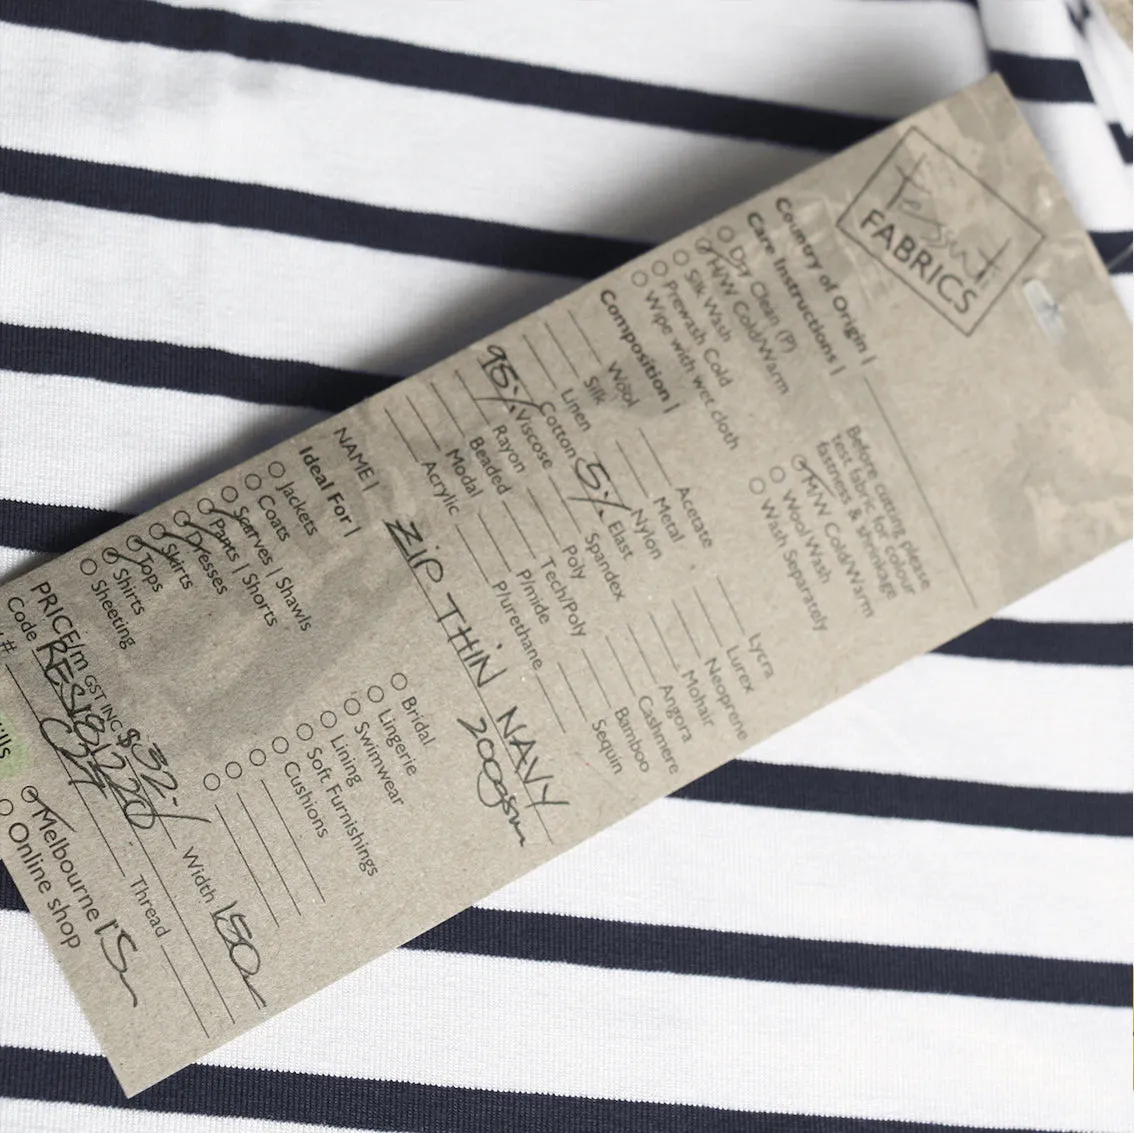 Tessuti
FABRICS
Country of Origin |
Care Instructions |
Dry Clean (P)
H/W Cold/Warm
Silk Wash
Prewash Cold
Wipe with wet cloth
Before cutting please
test fabric for colour
fastness & shrinkage
H/W Cold/Warm
Wool Wash
Wash Separately
Composition |
Wool
Silk
Linen
Cotton
95% Viscose
Rayon
Beaded
Modal
Acrylic
Acetate
Metal
Nylon
5% Elast
Spandex
Poly
Tech/Poly
P/mide
P/urethane
Lycra
Lurex
Neoprene
Mohair
Angora
Cashmere
Bamboo
Sequin
NAME | ZIP THIN NAVY
200gsm
Ideal For |
Jackets
Coats
Scarves | Shawls
Pants | Shorts
Dresses
Skirts
Tops
Shirts
Sheeting
Bridal
Lingerie
Swimwear
Lining
Soft Furnishings
Cushions
PRICE/m GST INC $32-/ Width 150
Code RES18/1220
# Thread
Melbourne
Online shop